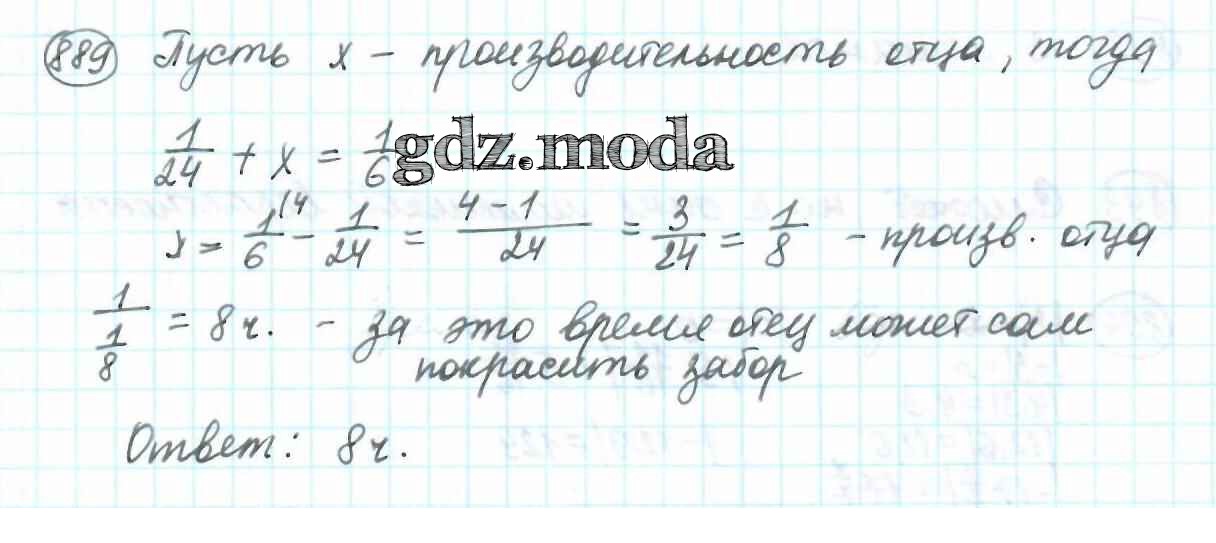 889 Пусть x – производительность отца, тогда
1/24 + x = 1/6 gdz.moda
x = 1/6 (4 – 1/24 = 4 – 1/24 = 3/24 = 1/8 – произв. отца
1/1/8 = 8 ч. – за это время отец может сам
покрасить забор
Ответ: 8 ч.